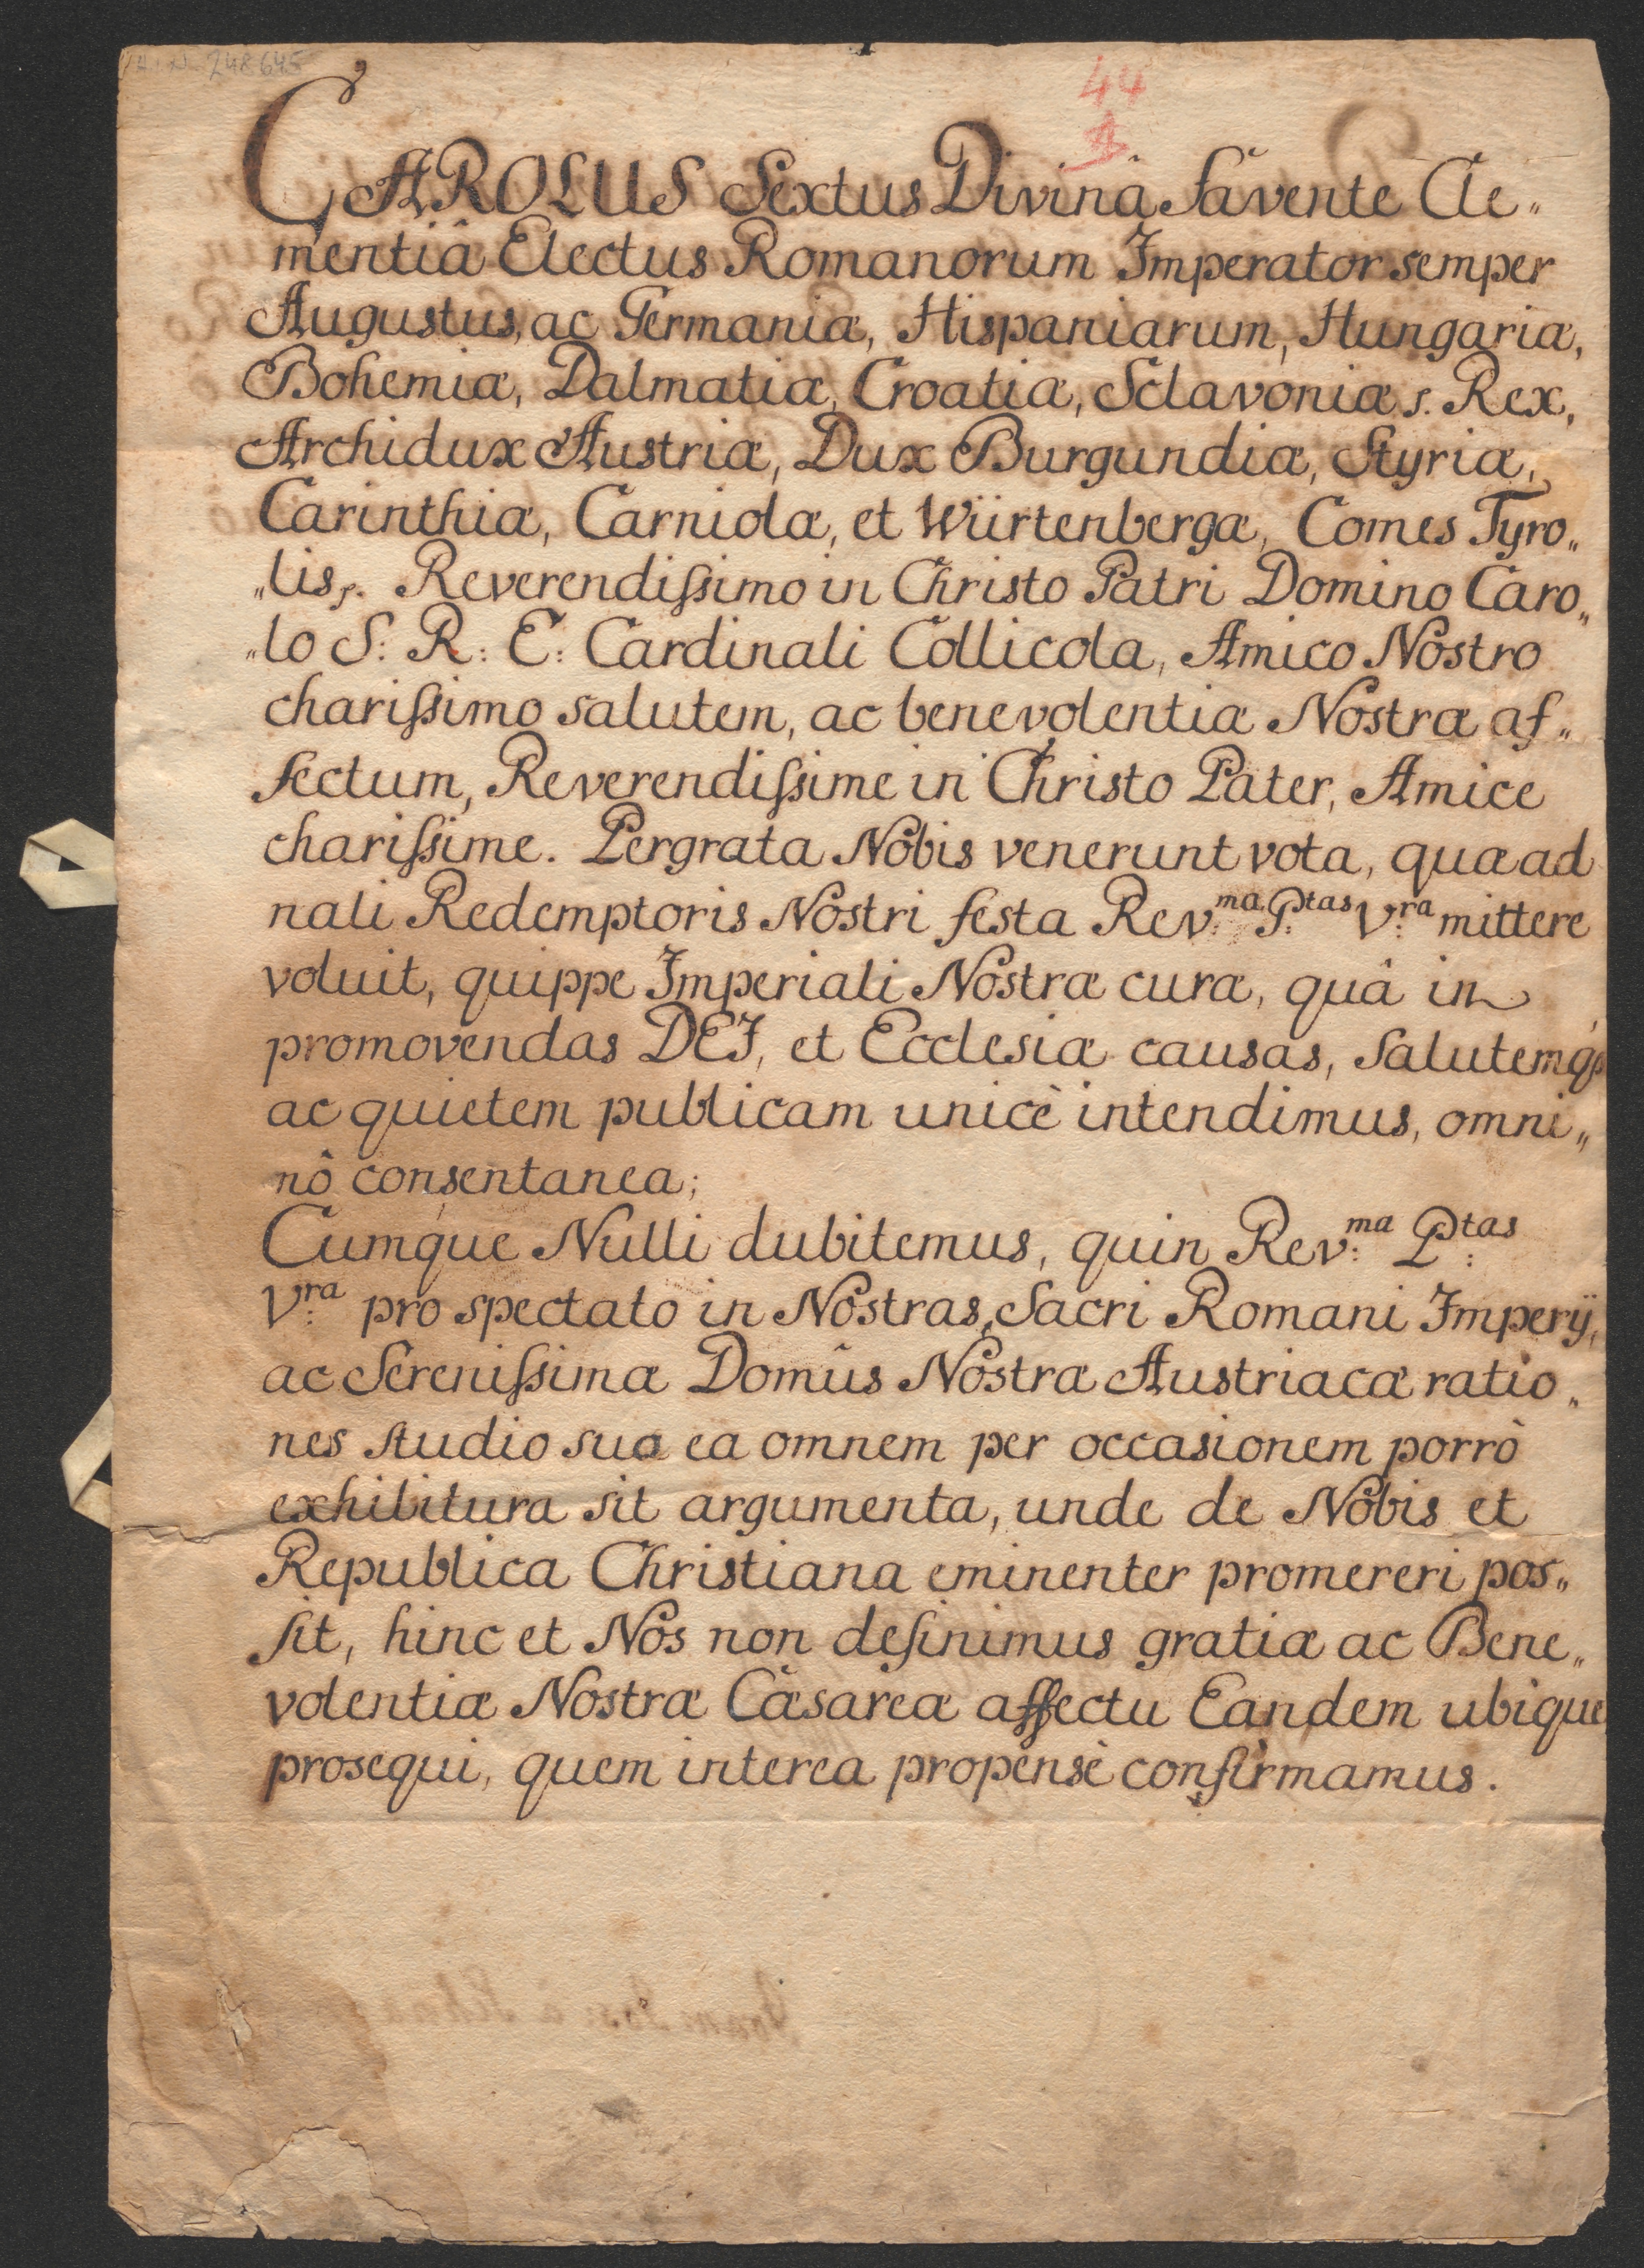 248645
44
CAROLUS Sextus Divinâ favente Cle„
mentiâ Electus Romanorum Imperator semper
Augustus, ac Germaniæ, Hispaniarum, Hungariæ,
Bohemiæ, Dalmatiæ, Croatiæ, Sclavoniæ Rex,
Archidux Austriæ, Dux Burgundiæ, Styriæ,
Carinthiæ, Carniolæ, et Würtenbergæ, Comes Tyro„
„lis. Reverendissimo in Christo Patri Domino Caro„
„lo S: R: E: Cardinali Collicola, Amico Nostro
charissimo salutem, ac benevolentiæ Nostræ af„
fectum, Reverendissime in Christo Pater, Amice
charissime. Pergrata Nobis venerunt vota, quæ ad
nali Redemptoris Nostri festa Rev:ma P:tas V:ra mittere
voluit, quippe Imperiali Nostræ curæ, quâ in
promovendas DEI, et Ecclesiæ causas, salutemq́ʒ
ac quietem publicam unicè intendimus, omni„
nô consentanea;
Cumque Nulli dubitemus, quin Rev:ma P:tas
V:ra pro spectato in Nostras, Sacri Romani Imperÿ,
ac Serenissimæ Domûs Nostræ Austriacæ ratio„
nes studio suo ea omnem per occasionem porrò
exhibitura sit argumenta, unde de Nobis et
Republica Christiana eminenter promereri pos„
sit, hinc et Nos non desinimus gratiæ ac Bene„
volentiæ Nostræ Cæsareæ affectu Eandem ubique
prosequi, quem interea propensè confirmamus.